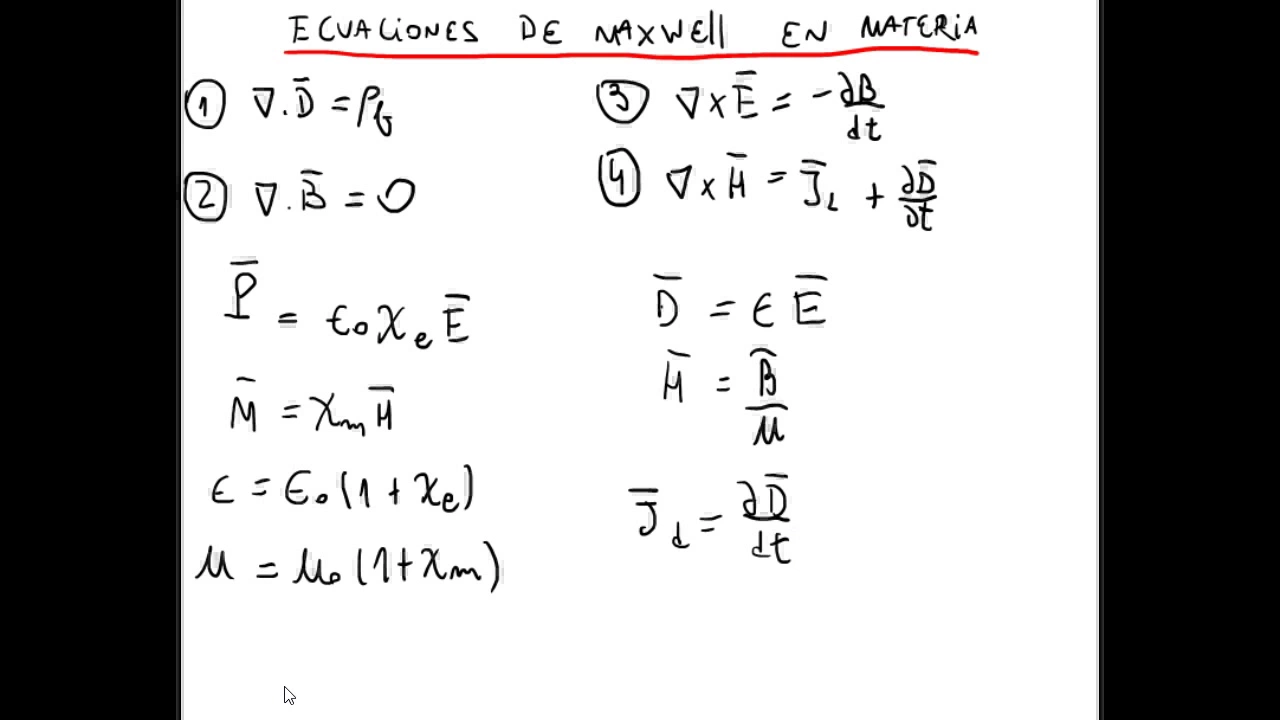 ECUACIONES DE MAXWELL EN MATERIA
① ∇·D̄ = ρ_f
② ∇·B̄ = 0
③ ∇×Ē = -∂B/dt
④ ∇×H̄ = J̄_L + ∂D̄/∂t
P̄ = ϵ₀χₑĒ
M̄ = χₘH̄
ϵ = ϵ₀(1 + χₑ)
μ = μ₀(1 + χₘ)
D̄ = ϵ Ē
H̄ = B̄/μ
J̄_d = ∂D̄/dt